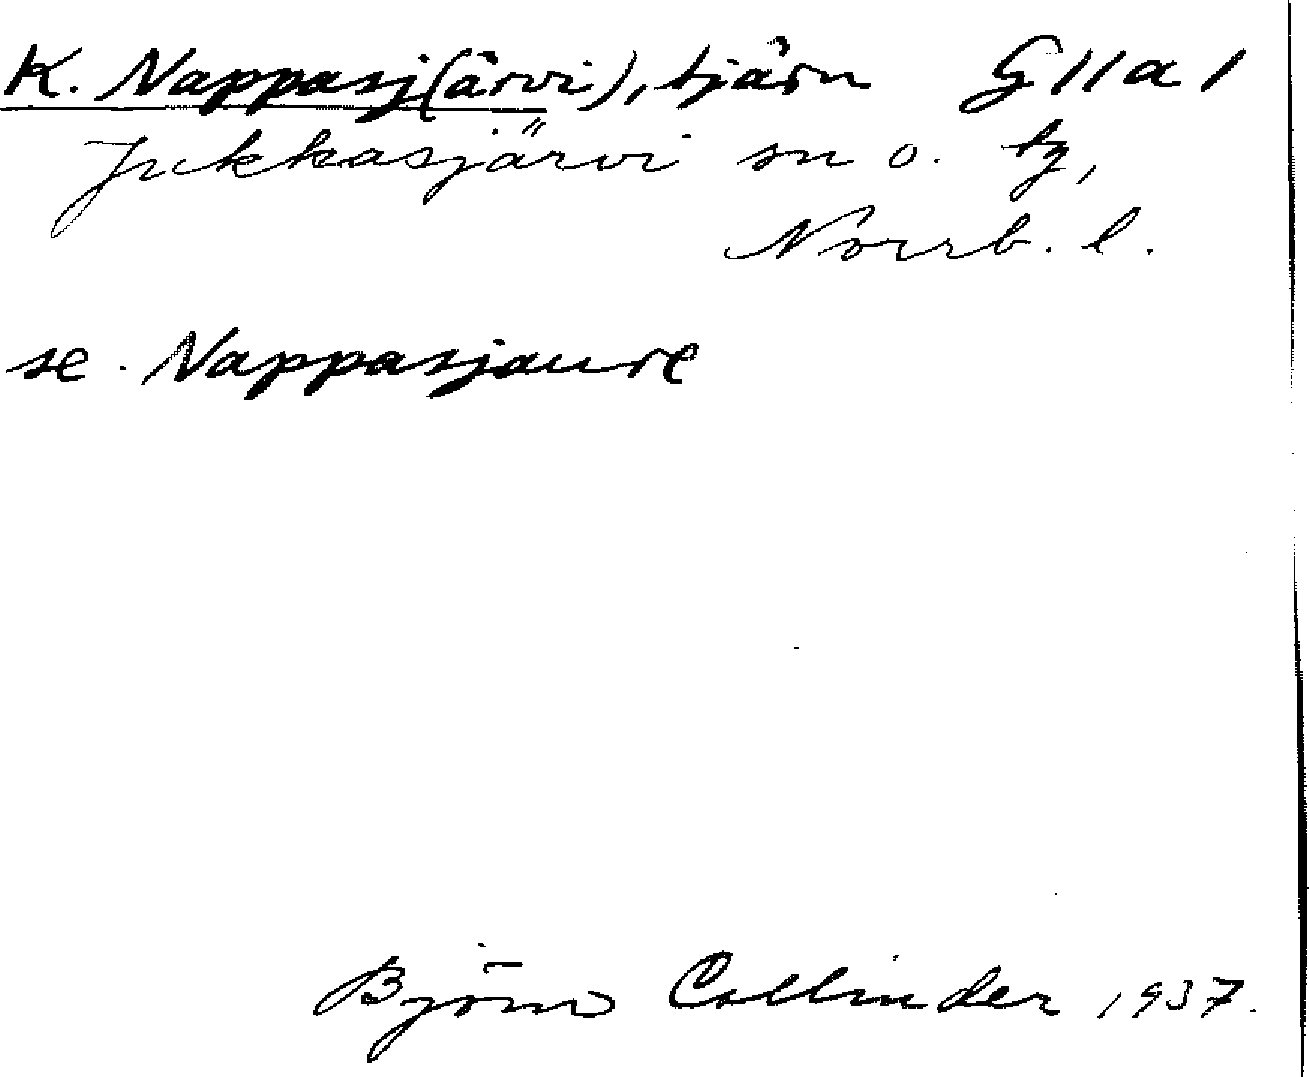 K. Nappasj(ärvi), tjärn G 11 a 1
Jukkasjärvi sn o. tg,
Norrb. l.
se. Nappasjaure
Björn Collinder 1937.